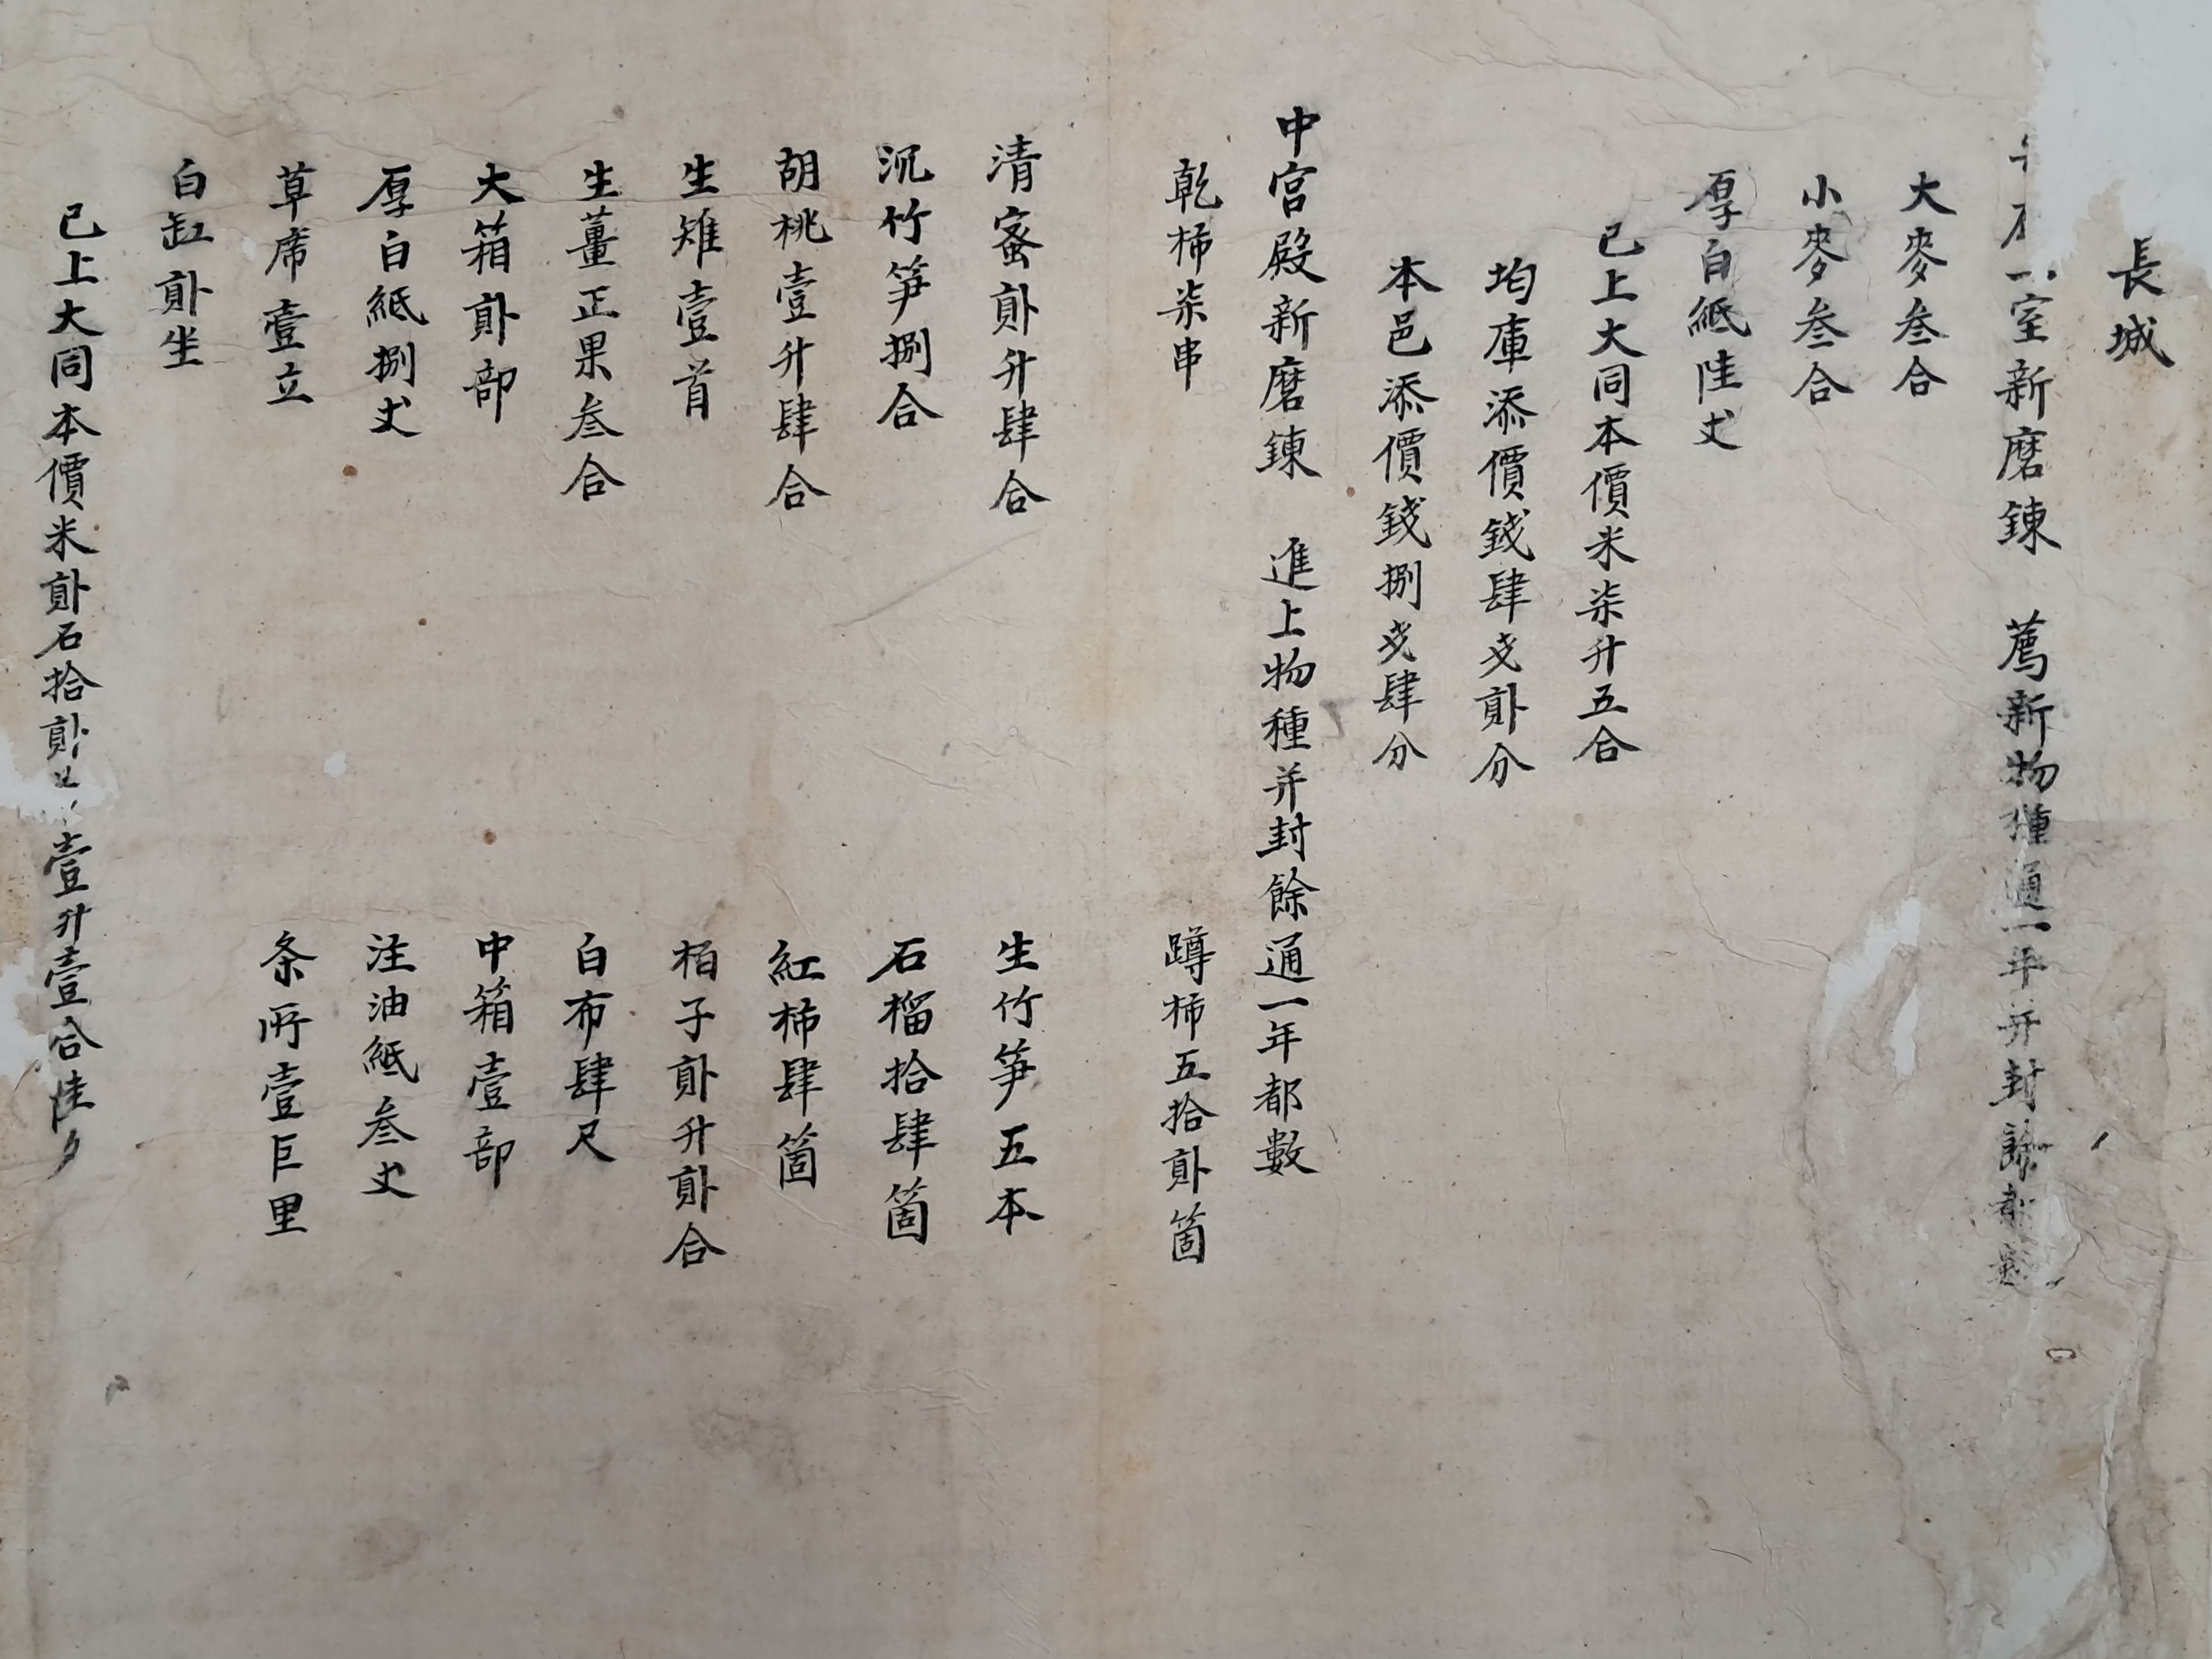 長城
一室新磨鍊 薦新物種通一年并封餘都數
大麥叁合
小麥叁合
厚白紙陸丈
已上大同本價米柒升五合
均庫添價錢肆戔貳分
本邑添價錢捌戔肆分
中宮殿新磨鍊 進上物種并封餘通一年都數
乾柿柒串 蹲柿五拾貳箇
清蜜貳升肆合 生竹笋五本
沉竹笋捌合 石榴拾肆箇
胡桃壹升肆合 紅柿肆箇
生雉壹首 栢子貳升貳合
生薑正果叁合 白布肆尺
大箱貳部 中箱壹部
厚白紙捌丈 注油紙叁丈
草席壹立 条所壹巨里
白缸貳坐
已上大同本價米貳石拾貳 壹升壹合陸夕